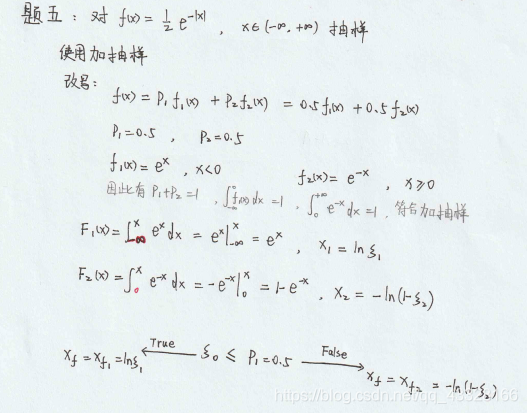 题五：对 f(x) = 1/2 e^{-|x|}，x∈(-∞, +∞) 抽样
使用加抽样
改写：
f(x) = P₁f₁(x) + P₂f₂(x) = 0.5f₁(x) + 0.5f₂(x)
P₁=0.5，P₂=0.5
f₁(x) = e^x，x<0　　f₂(x) = e^{-x}，x≥0
因此有 P₁+P₂=1，∫_{-∞}^{0} f(x) dx = 1，∫_{0}^{+∞} e^{-x} dx = 1，符合加抽样
F₁(x) = ∫_{-∞}^{x} e^x dx = e^x|_{-∞}^{x} = e^x，x₁ = lnξ₁
F₂(x) = ∫_{0}^{x} e^{-x} dx = -e^{-x}|_{0}^{x} = 1-e^{-x}，x₂ = -ln(1-ξ₂)
X_f = X_{f₁} = lnξ₁ ← True ξ₀ ≤ P₁=0.5 False → X_f = X_{f₂} = -ln(1-ξ₂)